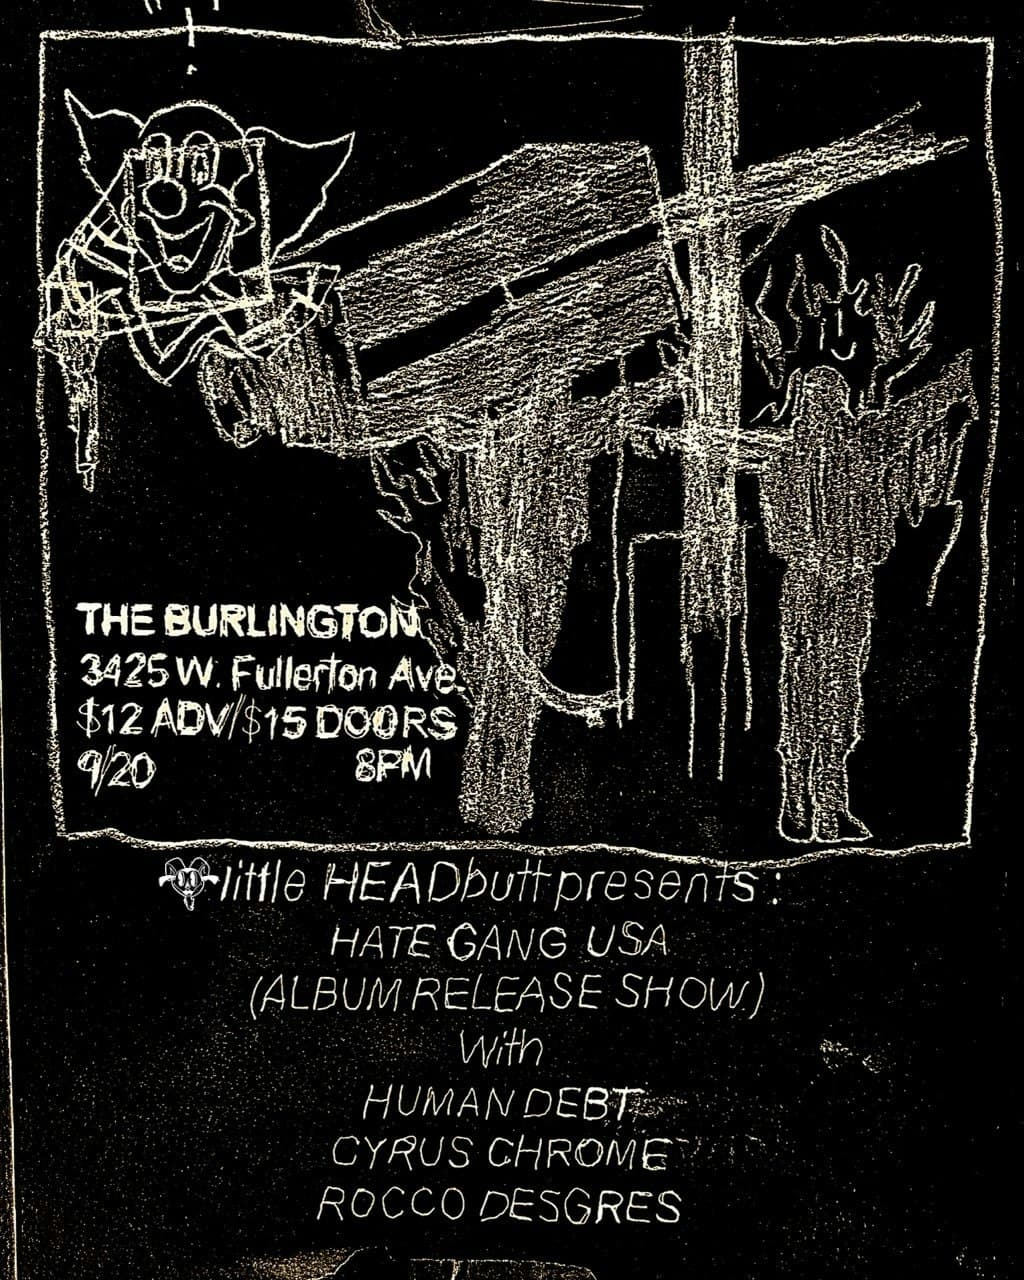 THE BURLINGTON
3425 W. Fullerton Ave.
$12 ADV/$15 DOORS
9/20 8PM
little HEADbutt presents:
HATE GANG USA
(ALBUM RELEASE SHOW)
With
HUMAN DEBT
CYRUS CHROME
ROCCO DESGRES